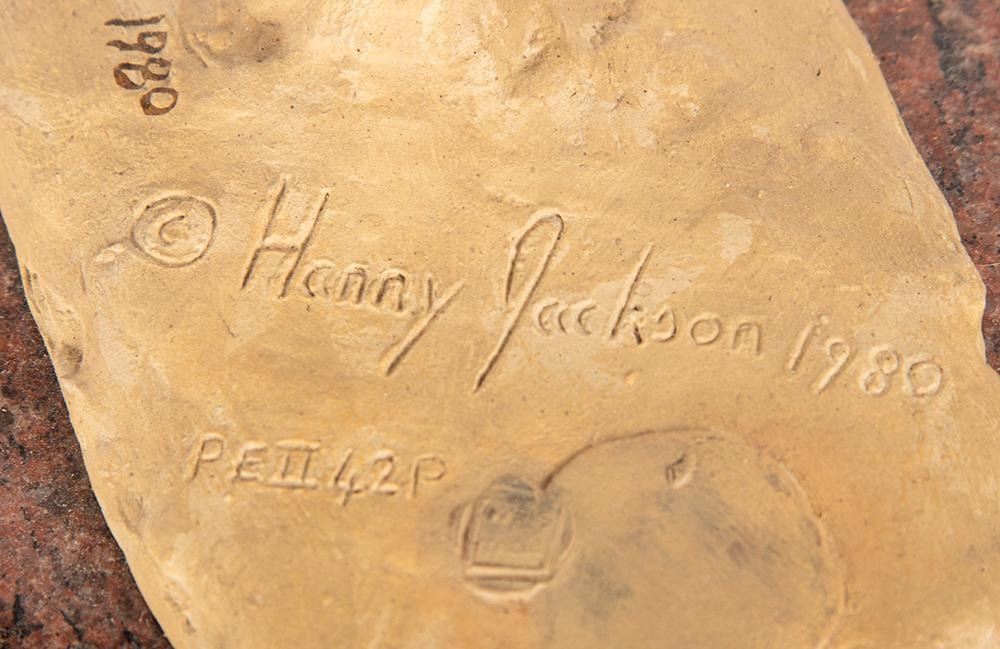 1980
© Harry Jackson 1980
P.E II 42P